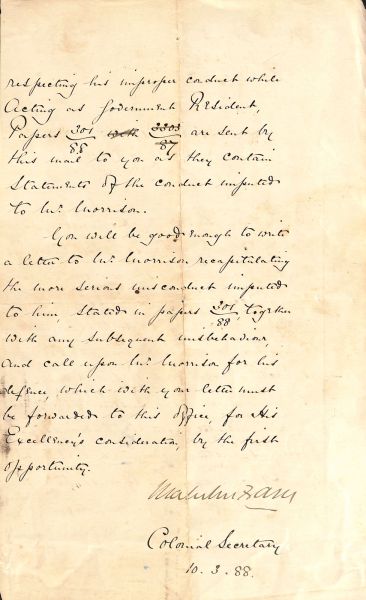 respecting his improper conduct while
Acting as Government Resident,
Papers 301/88 with 3303/87 are sent by
this mail to you as they contain
Statements of the conduct imputed
to Mr. Morrison.
You will be good enough to write
a letter to Mr. Morrison recapitulating
the more serious misconduct imputed
to him, stated in papers 301/88, together
with any subsequent misbehaviour,
and call upon Mr. Morrison for his
defence, which with your letter must
be forwarded to this office, for His
Excellency's consideration, by the first
opportunity.
Malcolm Fraser
Colonial Secretary
10.3.88.